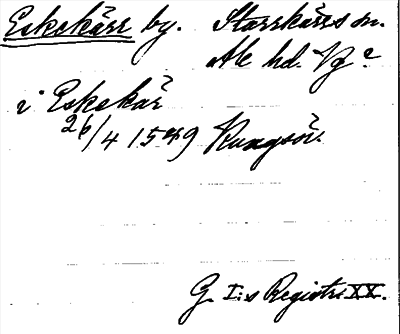 Eskekärr by. Starrkärrs sn.
Ale hd. Vg
i Eskekär
26/4 1549 Kungsör.
G. I:s Registr. XX.